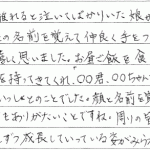 離れると泣いてしばかりいた娘が
の名前を覚えて仲良く手をつ
嬉しく思いました。お昼ご飯を食
を持ってきてくれ、〇〇君、〇〇ちゃん
いっしょとのことでした。顔と名前を覚
もありがたいことですね。周りの皆
ずつ成長していっている姿がみう